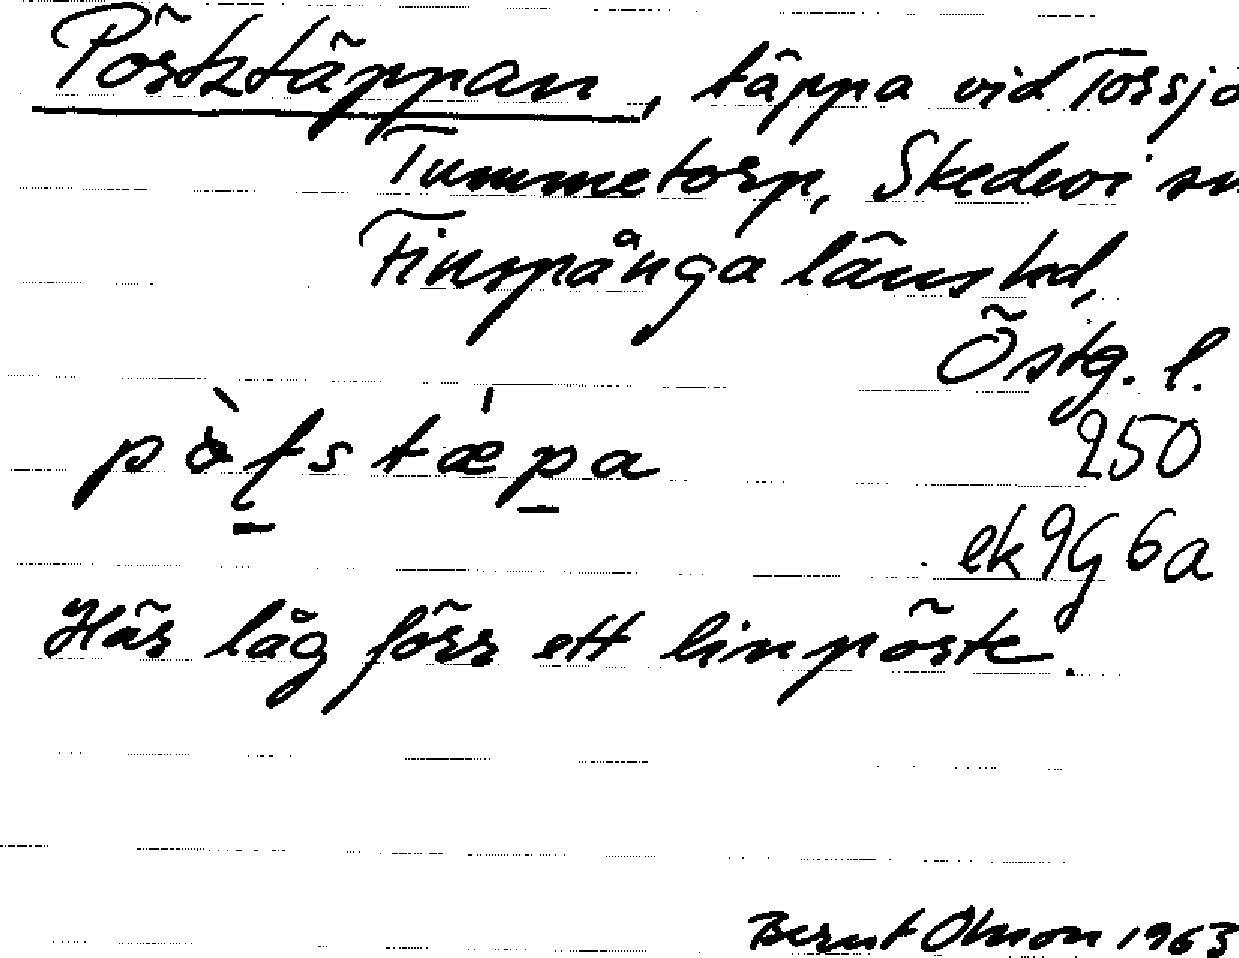 Pörtztäppan, täppa vid Torsjö
Tummetorp, Skedevi sn
Finspånga länshd,
Östg. l.
250
ek 9G 6a
Här låg förr ett linpörte.
Bernt Olsson 1963